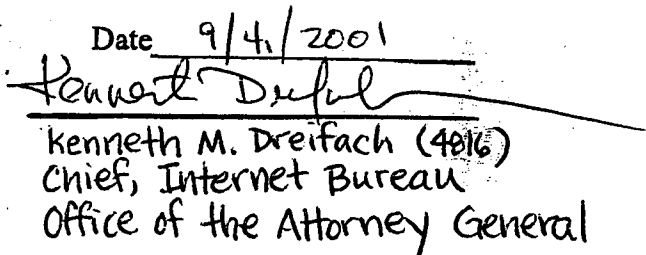 Date 9/4/2001
Kenneth M. Dreifach (4816)
Chief, Internet Bureau
Office of the Attorney General